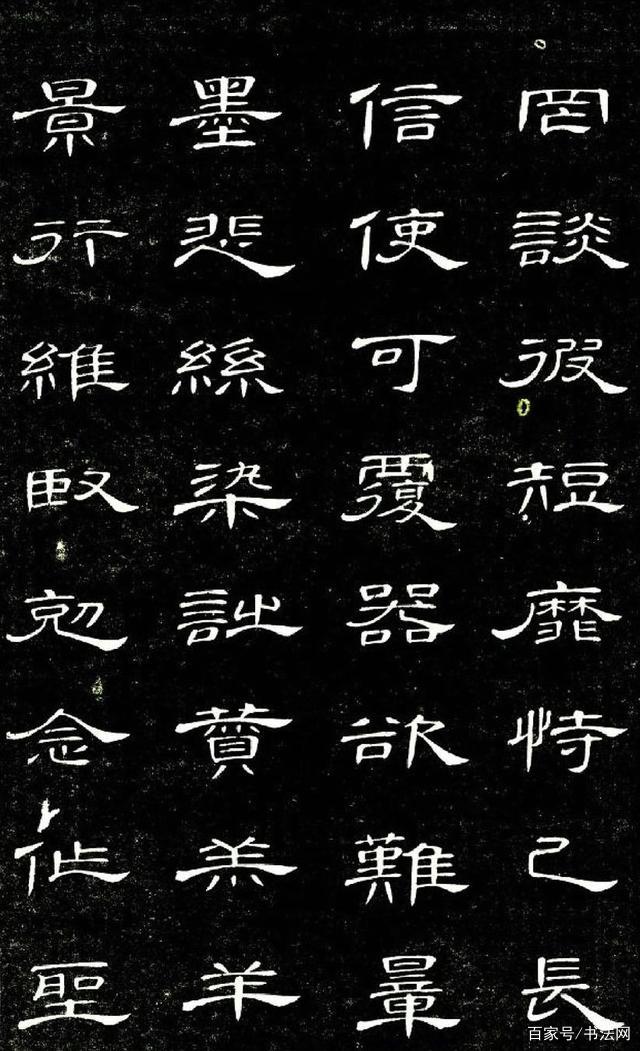 罔談彼短靡恃己長
信使可覆器欲難量
墨悲絲染詩贊羔羊
景行維賢克念作聖
百家号/书法网